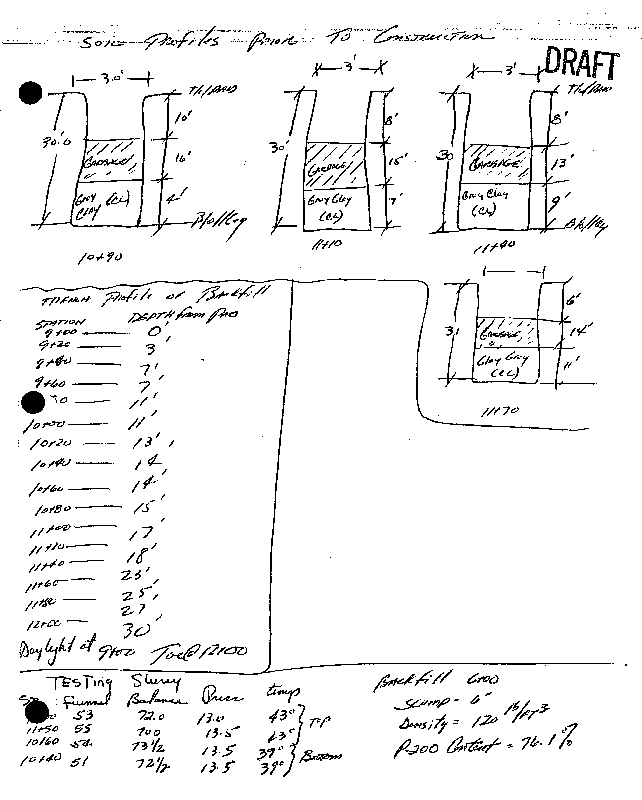 Soil Profiles Prior To Construction
DRAFT
3.0'
30.0
10'
16'
4'
GARBAGE
Gray Clay (CL)
10+90
3'
30'
8'
15'
7'
GARBAGE
Gray Clay (CL)
11+10
3'
30
8'
13'
9'
GARBAGE
Gray Clay (CL)
11+40
31
6'
14'
11'
GARBAGE
Gray Clay (CL)
11+70
Trench Profile of Backfill
STATION DEPTH from Pad
9+00 — 0'
9+20 — 3'
9+40 — 7'
9+60 — 7'
80 — 11'
10+00 — 11'
10+20 — 13'
10+40 — 14'
10+60 — 14'
10+80 — 15'
11+00 — 17'
11+20 — 18'
11+40 — 23'
11+60 — 25'
11+80 — 27'
12+00 — 30'
Daylight at 9+00 Toe @ 12+00
TESTING Slurry
Funnel Balance temp
53 72.0 13.0 43° Top
11+50 55 70.0 13.5 43°
10+60 54 73 1/2 13.5 39° Bottom
10+40 51 72 1/2 13.5 39°
Backfill 6+00
Slump = 6"
Density = 120 lb/ft3
P-200 Content = 76.1%